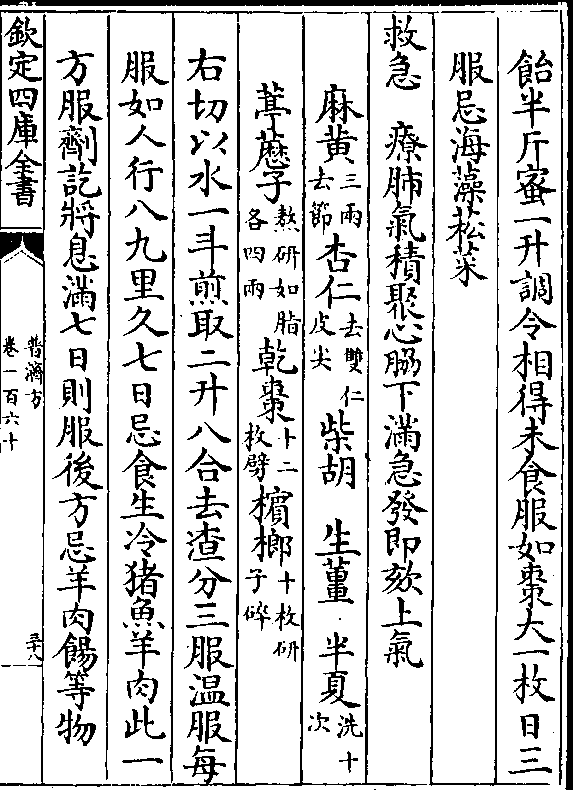 飴半斤蜜一升調令相得未食服如棗大一枚日三
服忌海藻菘菜
救急　療肺氣積聚心脇下滿急發即欬上氣
麻黄三兩去節杏仁去雙仁皮尖柴胡　生薑　半夏洗十次
葶藶子熬研如脂各四兩乾棗十二枚劈檳榔十枚研子碎
右切以水一斗煎取二升八合去渣分三服温服每
服如人行八九里久七日忌食生冷猪魚羊肉此一
方服劑訖將息滿七日則服後方忌羊肉餳等物
欽定四庫全書
普濟方
卷一百六十
三十八